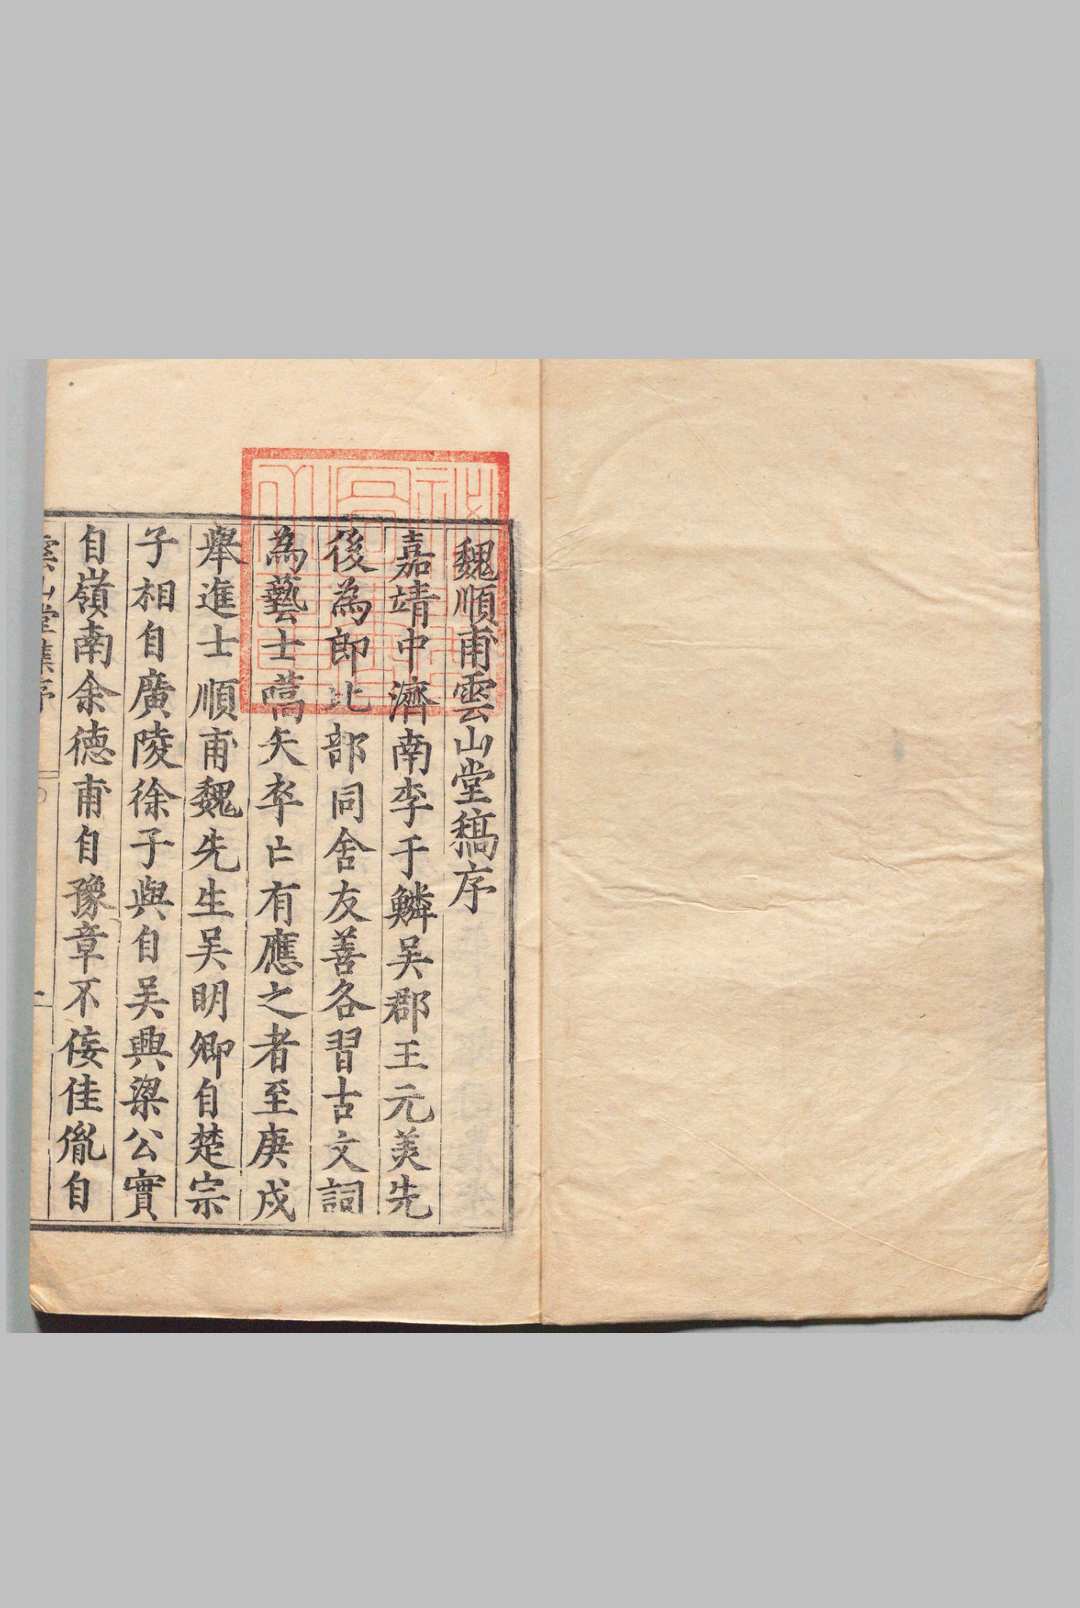 魏順甫雲山堂稿序
嘉靖中濟南李于鱗吴郡王元美先
後為郎比部同舍友善各習古文詞
為藝士嚆矢率亡有應之者至庚戌
舉進士順甫魏先生吴明卿自楚宗
子相自廣陵徐子與自吴興梁公實
自嶺南余德甫自豫章不佞佳胤自
雲山堂集序
一